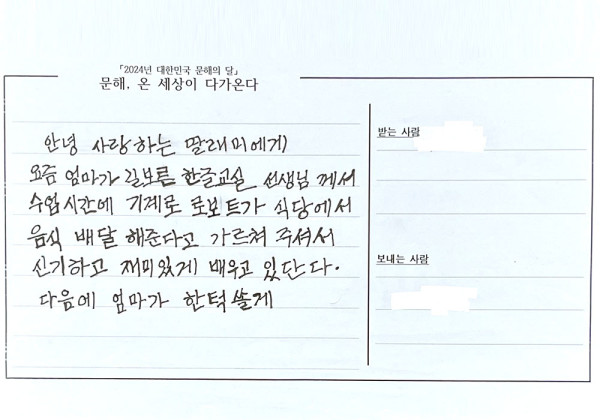 「2024년 대한민국 문해의 달」
문해, 온 세상이 다가온다
안녕 사랑하는 딸래미에게)
요즘 엄마가 길보른 한글교실 선생님 께서
수업시간에 기계로 로보트가 식당에서
음식 배달 해준다고 가르쳐 주셔서
신기하고 재미있게 배우고 있단다.
다음에 엄마가 한턱 쏠게
받는 사람
보내는 사람